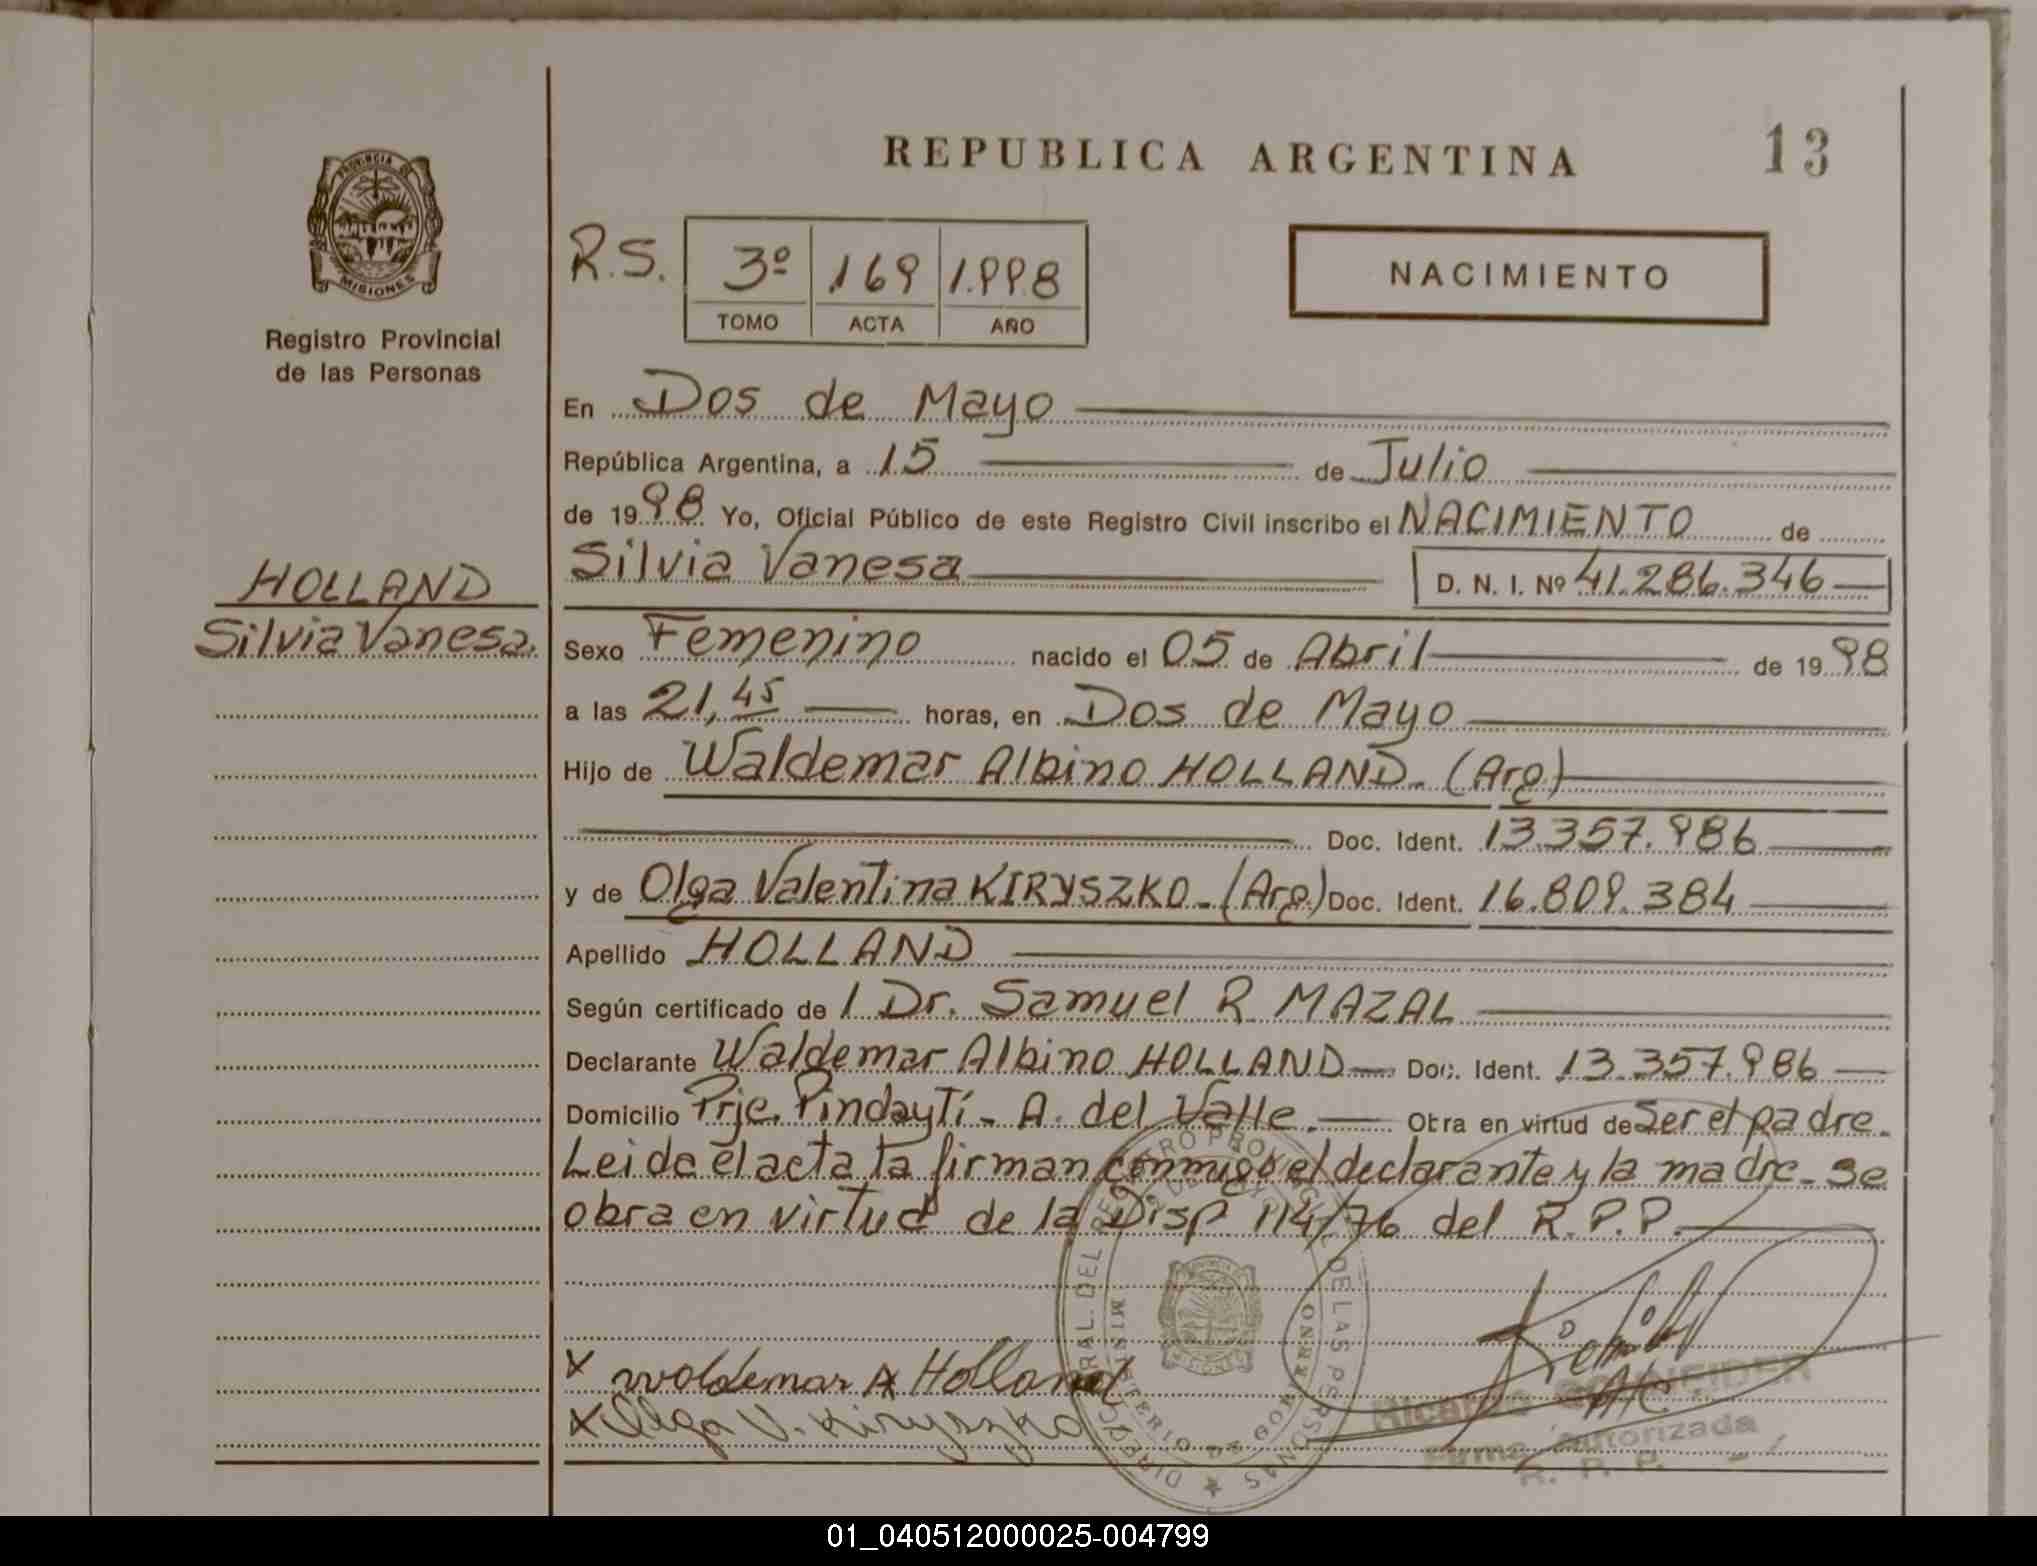 REPUBLICA ARGENTINA
13
PROVINCIA DE
MISIONES
Registro Provincial
de las Personas
R.S. 3º 169 1.998
TOMO ACTA AÑO
NACIMIENTO
En Dos de Mayo
República Argentina, a 15 de Julio
de 1998 Yo, Oficial Público de este Registro Civil inscribo el NACIMIENTO de
Silvia Vanesa D. N. I. Nº 41.286.346
HOLLAND
Silvia Vanesa.
Sexo Femenino nacido el 05 de Abril de 1998
a las 21,45 horas, en Dos de Mayo
Hijo de Waldemar Albino HOLLAND - (Arg)
Doc. Ident. 13.357.986
y de Olga Valentina KIRYSZKO - (Arg) Doc. Ident. 16.809.384
Apellido HOLLAND
Según certificado de / Dr. Samuel R MAZAL
Declarante Waldemar Albino HOLLAND Doc. Ident. 13.357.986
Domicilio Prje. Pindaytí - A. del Valle. Obra en virtud de Ser el padre.
Leida el acta la firman conmigo el declarante y la madre - Se
obra en virtud de la Disp 114/76 del R.P.P.
x Woldemar A Holland
x Olga V. Kiryszko
DE LAS PERSONAS
MINISTERIO DE GOBIERNO
Ricardo SCHNEIDER
Firma Autorizada
R. P. P.
01_040512000025-004799